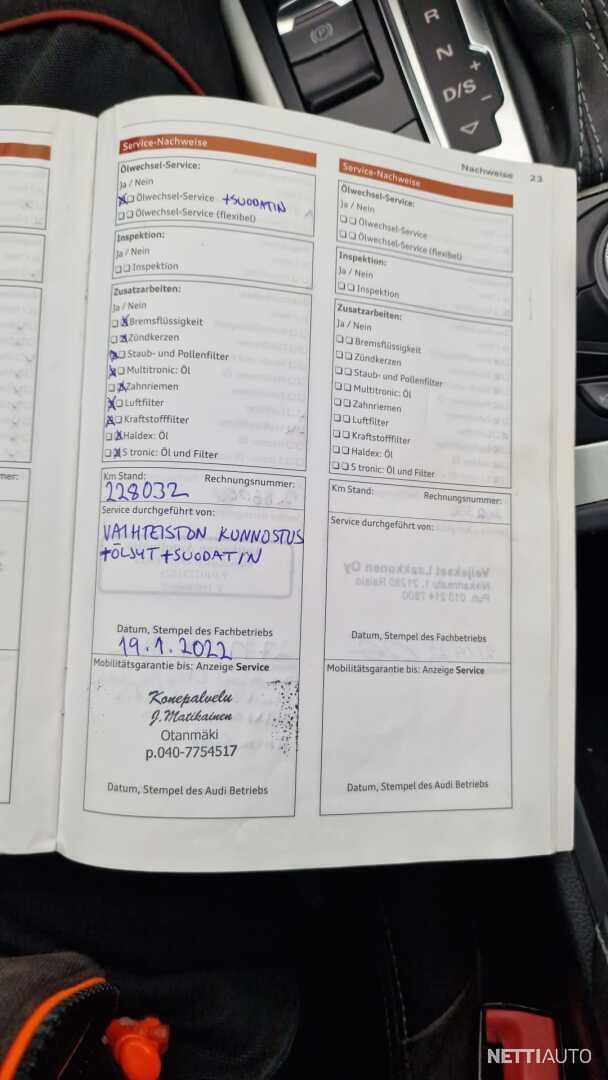 P
R
N
D/S
+
-
Nachweise 23
Service-Nachweise
Ölwechsel-Service:
Ja / Nein
Ölwechsel-Service +SUODATIN
Ölwechsel-Service (flexibel)
Inspektion:
Ja / Nein
Inspektion
Zusatzarbeiten:
Ja / Nein
Bremsflüssigkeit
Zündkerzen
Staub- und Pollenfilter
Multitronic: Öl
Zahnriemen
Luftfilter
Kraftstofffilter
Haldex: Öl
S tronic: Öl und Filter
Km Stand: Rechnungsnummer:
228032
Service durchgeführt von:
VAIHTEISTON KUNNOSTUS
+ÖLJYT +SUODATIN
Datum, Stempel des Fachbetriebs
19.1.2022
Mobilitätsgarantie bis: Anzeige Service
Konepalvelu
J.Matikainen
Otanmäki
p.040-7754517
Datum, Stempel des Audi Betriebs
Service-Nachweise
Ölwechsel-Service:
Ja / Nein
Ölwechsel-Service
Ölwechsel-Service (flexibel)
Inspektion:
Ja / Nein
Inspektion
Zusatzarbeiten:
Ja / Nein
Bremsflüssigkeit
Zündkerzen
Staub- und Pollenfilter
Multitronic: Öl
Zahnriemen
Luftfilter
Kraftstofffilter
Haldex: Öl
S tronic: Öl und Filter
Km Stand: Rechnungsnummer:
Service durchgeführt von:
Veljekset Laakkonen Oy
Niskamatu 1, 21280 Raisio
Puh. 010 214 7800
Datum, Stempel des Fachbetriebs
Mobilitätsgarantie bis: Anzeige Service
Datum, Stempel des Audi Betriebs
mer:
mer:
NETTIAUTO